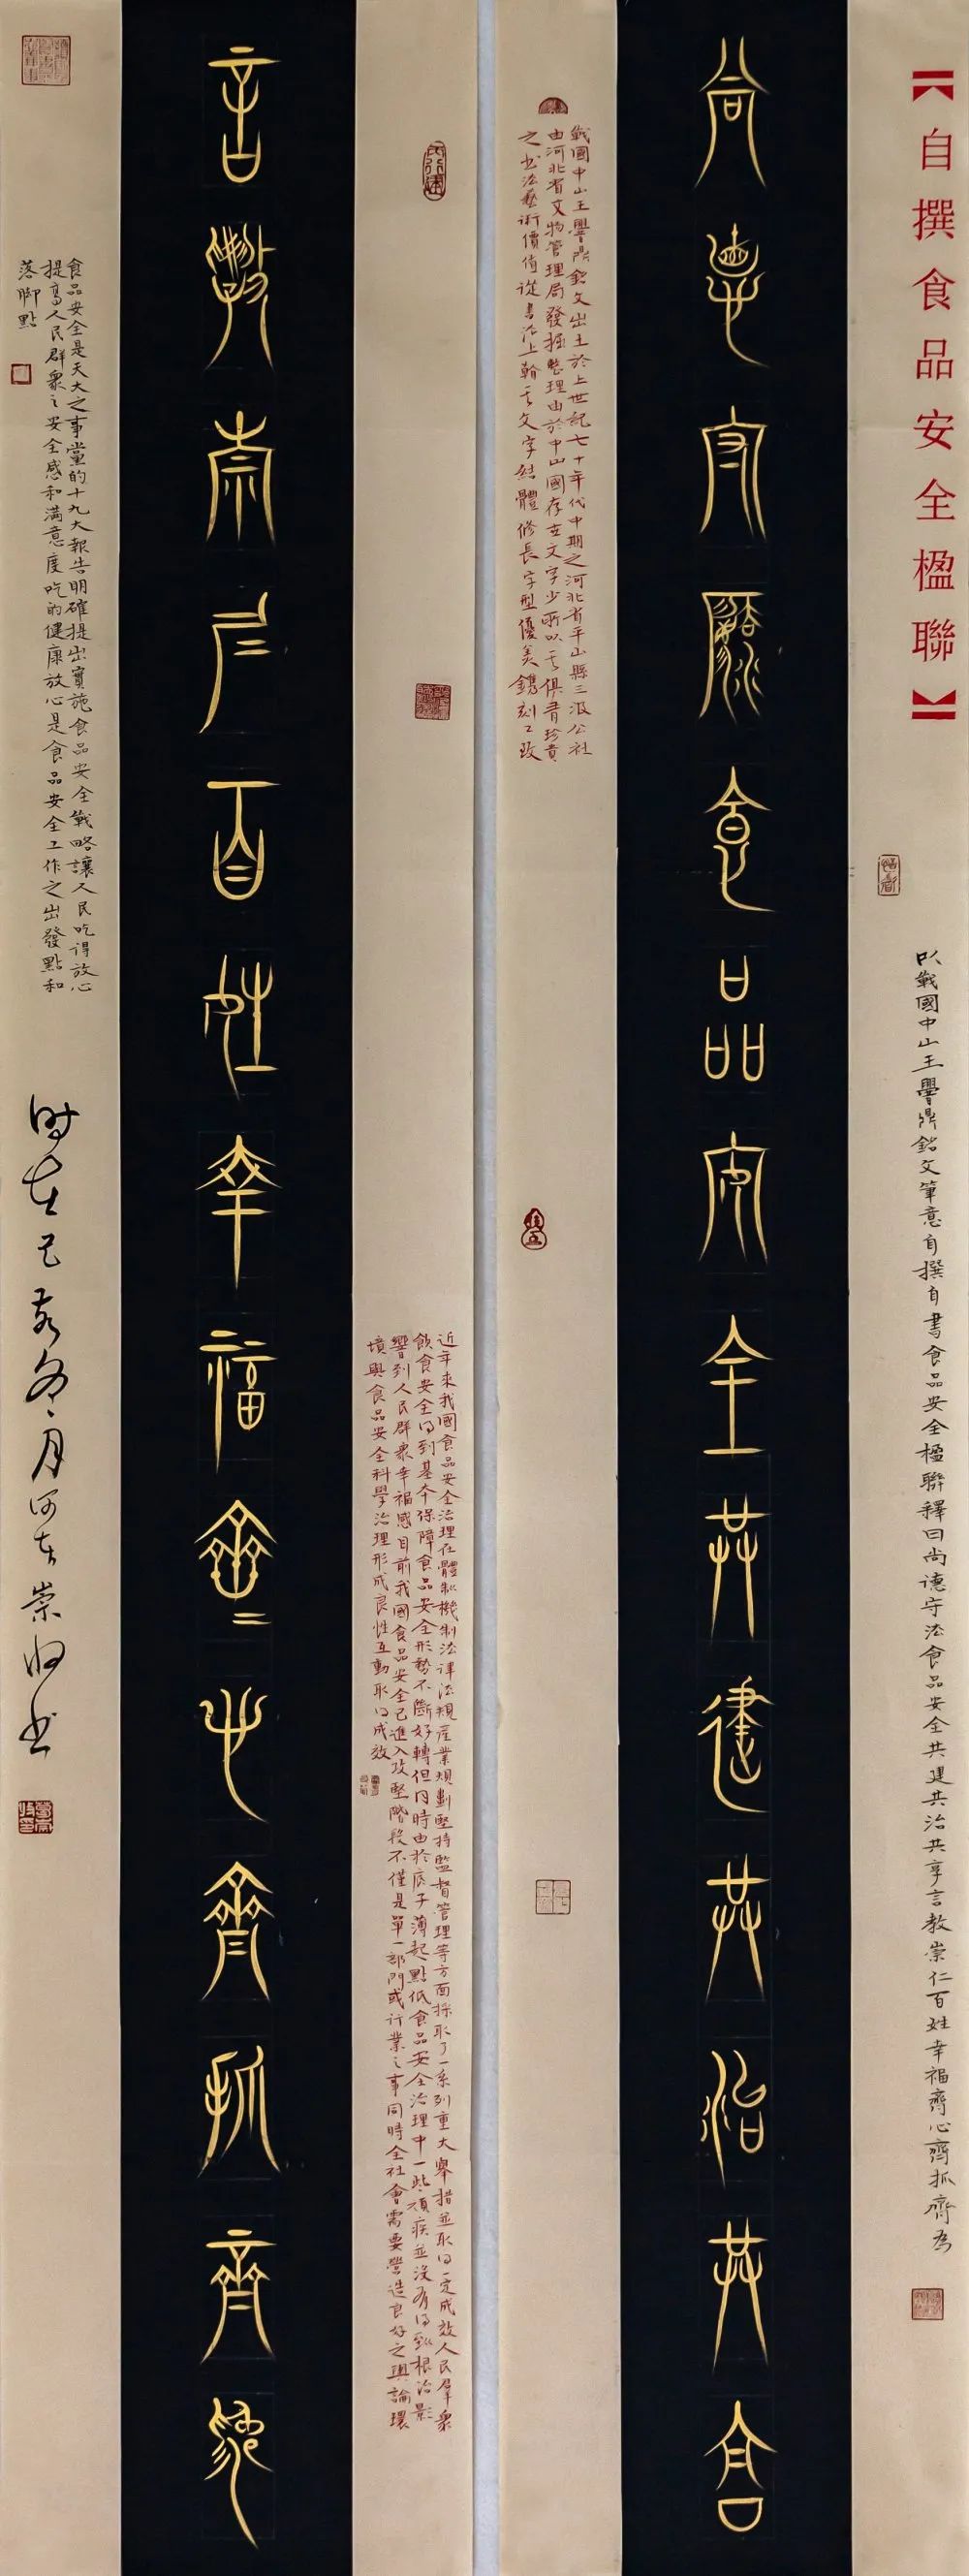 【自撰食品安全楹聯】
以戰國中山王𰯼鼎銘文筆意自撰自書食品安全楹聯釋曰尚德守法食品安全共建共治共享言教崇仁百姓幸福齊心齊抓齊為
尚德守灋食品安全共建共治共享
戰國中山王𰯼鼎銘文出土於上世紀七十年代中期之河北省平山縣三汲公社
由河北省文物管理局發掘整理由於中山國存世文字少所以其俱有珍貴
之書法藝術價值從書法上翰其文字結體修長字型優美鐫刻工致
近年來我國食品安全治理在體制機制法律法規産業規劃堅持監督管理等方面採取了一系列重大舉措並取得一定成效人民群衆
飲食安全得到基本保障食品安全形勢不斷好轉但同時由於底子薄起點低食品安全治理中一些頑疾並没有得到根治影
響到人民群衆幸福感目前我國食品安全已進入攻堅階段不僅是單一部門或行業之事同時全社會需要營造良好之輿論環
境與食品安全科學治理形成良性互動取得成效
言教崇仁百姓幸福齊心齊抓齊為
食品安全是天大之事黨的十九大報告明確提出實施食品安全戰略讓人民吃得放心
提高人民群衆之安全感和滿意度吃的健康放心是食品安全工作之出發點和
落脚點
时在己亥冬月